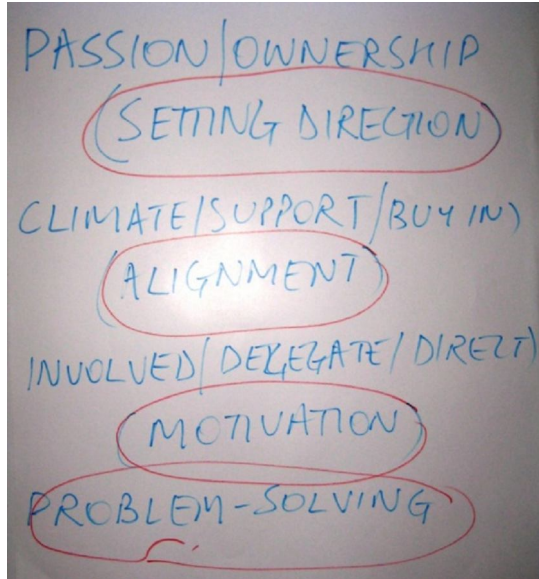 PASSION/OWNERSHIP
(SETTING DIRECTION)
CLIMATE/SUPPORT/BUY IN)
(ALIGNMENT)
INVOLVED/DELEGATE/DIRECT)
(MOTIVATION)
PROBLEM-SOLVING